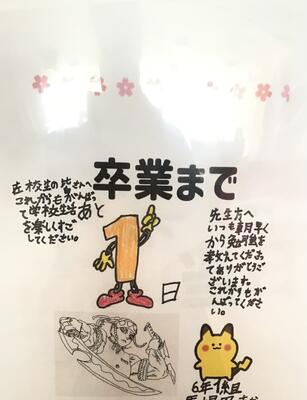 卒業まで
在校生の皆さんへ
これからもがんばっ
て学校生活
を楽しくすご
してください。
あと
1
日
先生方へ
いつも朝早く
から勉強を
教えてくださっ
てありがとうご
ざいます。
これからもが
んばってくださ
い。
6年1組